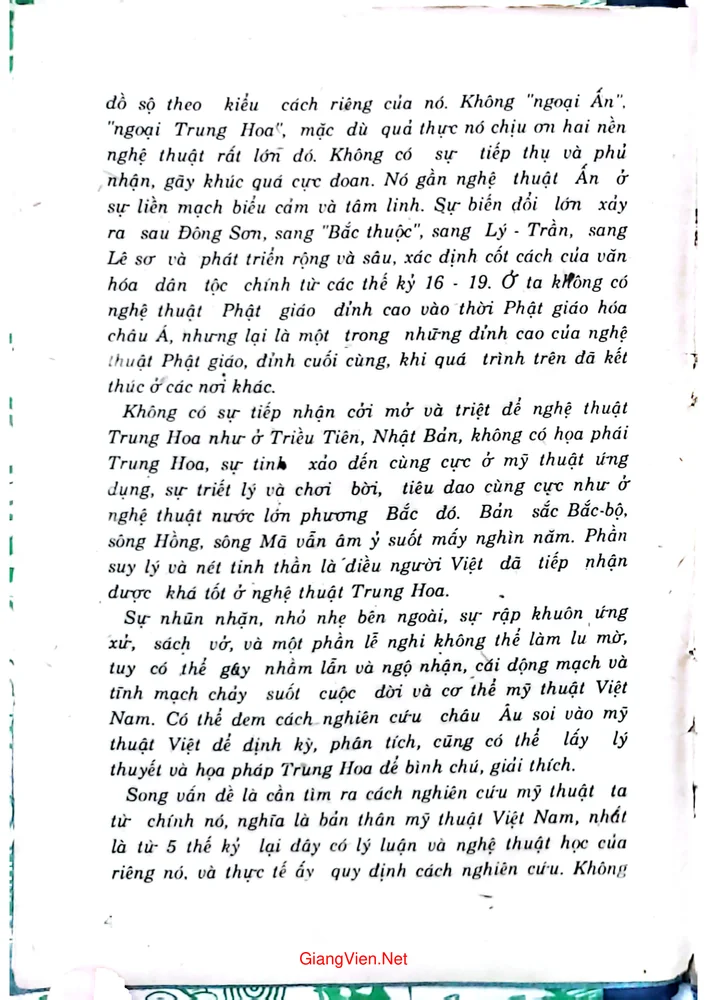 đồ sộ theo kiểu cách riêng của nó. Không "ngoại Ấn",
"ngoại Trung Hoa", mặc dù quả thực nó chịu ơn hai nền
nghệ thuật rất lớn đó. Không có sự tiếp thụ và phủ
nhận, gãy khúc quá cực đoan. Nó gần nghệ thuật Ấn ở
sự liền mạch biểu cảm và tâm linh. Sự biến đổi lớn xảy
ra sau Đông Sơn, sang "Bắc thuộc", sang Lý - Trần, sang
Lê sơ và phát triển rộng và sâu, xác định cốt cách của văn
hóa dân tộc chính từ các thế kỷ 16 - 19. Ở ta không có
nghệ thuật Phật giáo đỉnh cao vào thời Phật giáo hóa
châu Á, nhưng lại là một trong những đỉnh cao của nghệ
thuật Phật giáo, đỉnh cuối cùng, khi quá trình trên đã kết
thúc ở các nơi khác.
Không có sự tiếp nhận cởi mở và triệt để nghệ thuật
Trung Hoa như ở Triều Tiên, Nhật Bản, không có họa phái
Trung Hoa, sự tinh xảo đến cùng cực ở mỹ thuật ứng
dụng, sự triết lý và chơi bời, tiêu dao cùng cực như ở
nghệ thuật nước lớn phương Bắc đó. Bản sắc Bắc-bộ,
sông Hồng, sông Mã vẫn âm ỷ suốt mấy nghìn năm. Phần
suy lý và nét tinh thần là điều người Việt đã tiếp nhận
được khá tốt ở nghệ thuật Trung Hoa.
Sự nhũn nhặn, nhỏ nhẹ bên ngoài, sự rập khuôn ứng
xử, sách vở, và một phần lễ nghi không thể làm lu mờ,
tuy có thể gây nhầm lẫn và ngộ nhận, cái động mạch và
tĩnh mạch chảy suốt cuộc đời và cơ thể mỹ thuật Việt
Nam. Có thể đem cách nghiên cứu châu Âu soi vào mỹ
thuật Việt để định kỳ, phân tích, cũng có thể lấy lý
thuyết và họa pháp Trung Hoa để bình chú, giải thích.
Song vấn đề là cần tìm ra cách nghiên cứu mỹ thuật ta
từ chính nó, nghĩa là bản thân mỹ thuật Việt Nam, nhất
là từ 5 thế kỷ lại đây có lý luận và nghệ thuật học của
riêng nó, và thực tế ấy quy định cách nghiên cứu. Không
GiangVien.Net